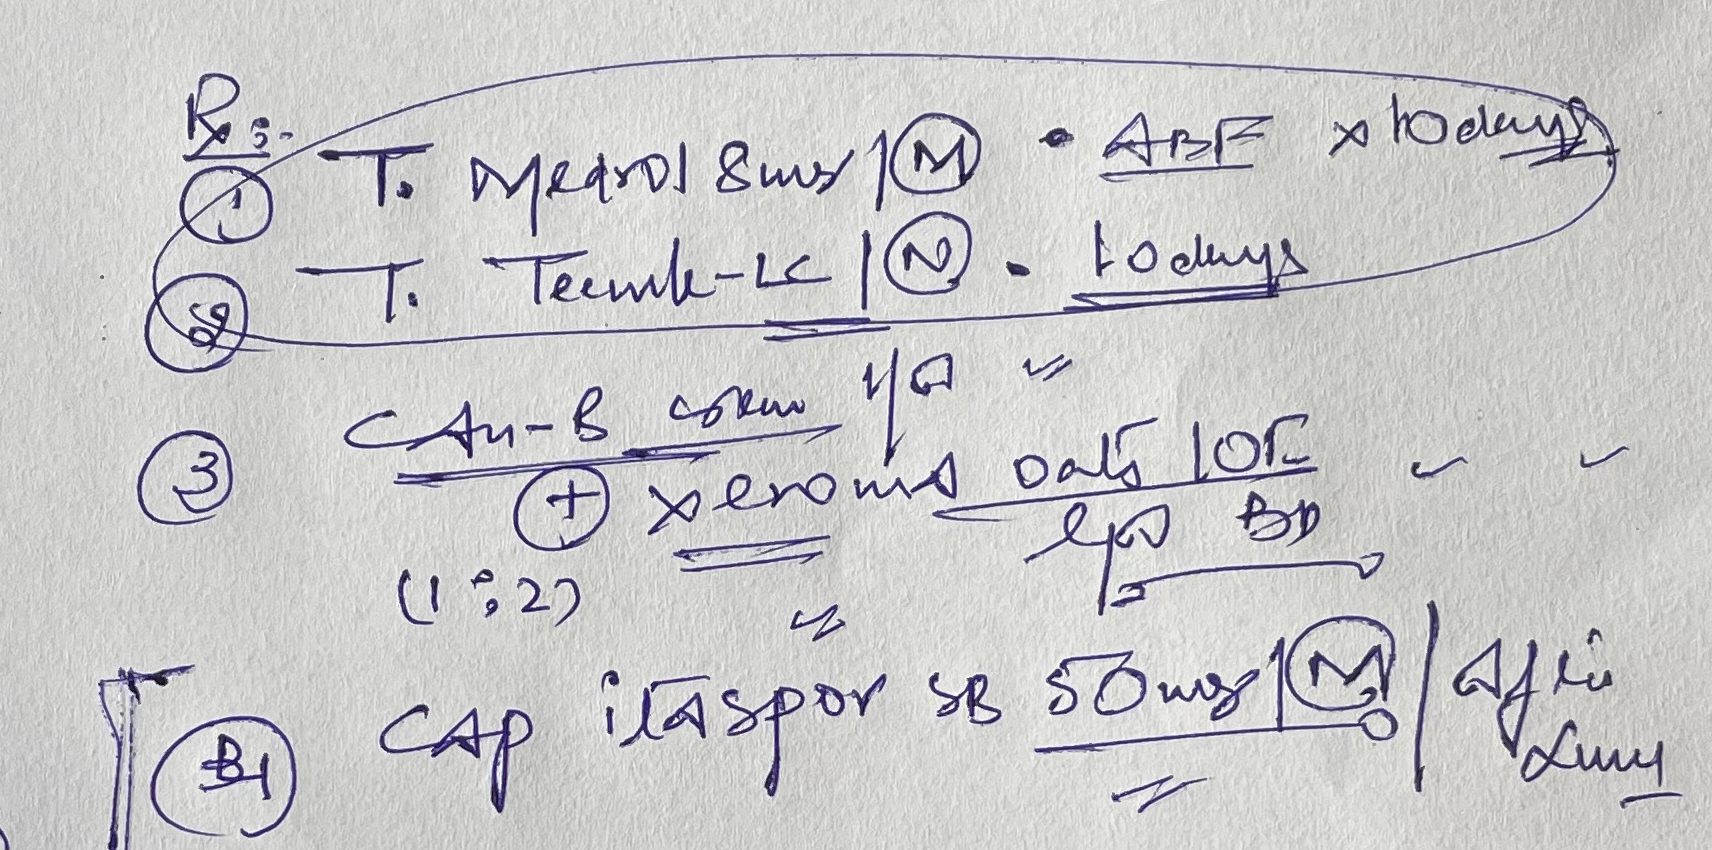 Rx :-
① T. Medrol 8mg | Ⓜ • ABF x 10 days
② T. Teczine-LC | Ⓝ • 10 days
③ CAn-B cream
⊕ xeroma oats LOT
(1:2) l/a BD
CAP itaspor SB 50mg | Ⓜ | After